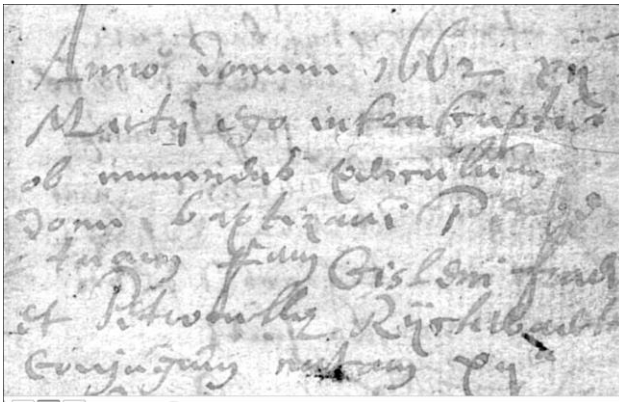 Anno Domini 1662 xij
Martij ego infrascriptus
ob imminens periculum
domi baptizavi P
filiam Gisleni
et Petronilla Rijckwaert
conjugum natam xij